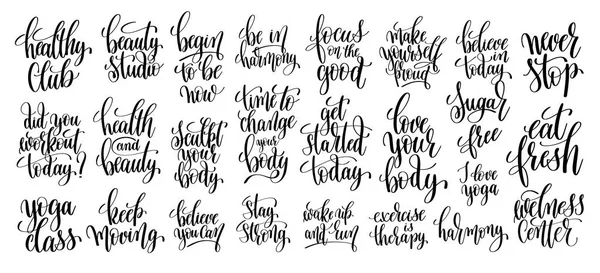 healthy
Club
beauty
Studio
begin
to be
now
be in
harmony
focus
on the
good
make
yourself
proud
believe
in
today
never
stop
did you
workout
today?
health
and
beauty
sculpt
your
body
time to
change
your
body
get
started
today
love
your
body
Sugar
free
I love
yoga
eat
fresh
yoga
class
keep
moving
believe
you can
stay
strong
wake up
and run
exercise
is
therapy
harmony
welness
center